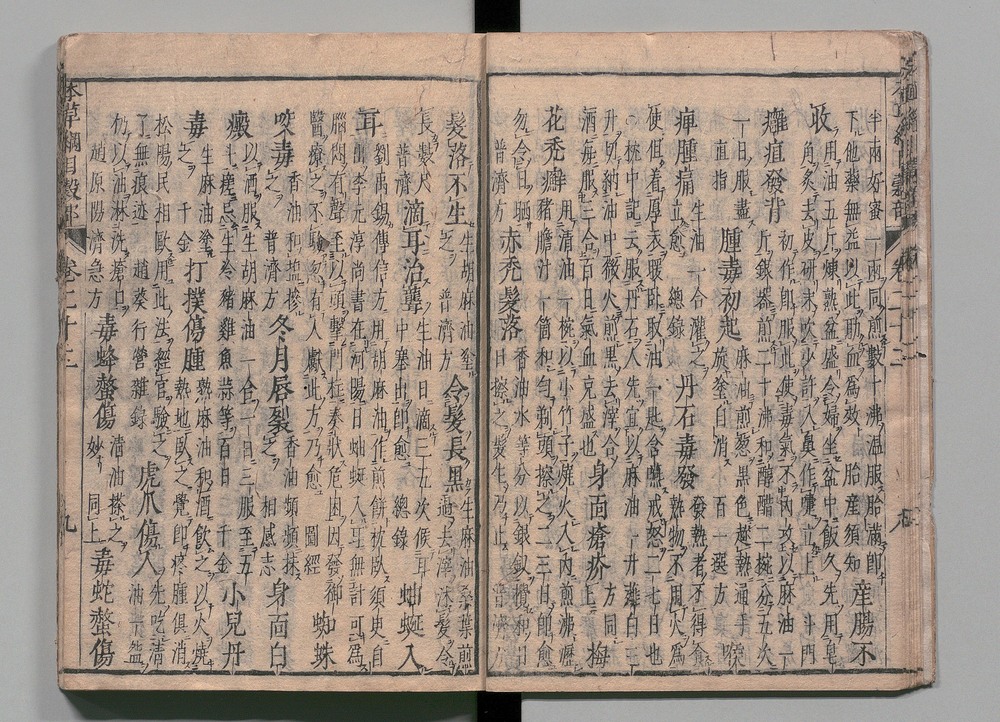 半兩好蜜一兩同煎數十沸温服胎滿即
下他藥無益以此助血爲效 胎産須知 産腸不
收 用油五斤煉熟盆盛令婦坐盆中飯久先用皂
角炙去皮研末吹少許入鼻作嚔立上 斗門
癰疽發背 初作即服此使毒氣不内攻以麻油一
斤銀器煎二十沸和醇醋二椀分五次
一日服盡 直指 腫毒初起 麻油煎葱黑色趁熱通手
旋塗自消 百一選方 喉
痺腫痛 生油一合灌之立愈 總録 丹石毒發 發熱者不得食
熱物不用火爲
使但着厚衣暖卧取油一匙含嚥戒怒二七日也
枕中記云服丹石人先宜以麻油一升薤白三
升切納油中微火煎黒去滓合
酒毎服三合百日氣血充盛也 身面瘡疥 方同上 梅
花禿癬 用清油一椀以小竹子燒火入内煎沸瀝
猪膽汁一箇和匀剃頭擦之二三日即愈
勿令日晒 普濟方 赤禿髮落 香油水等分以銀釵攪和
日擦之髮生乃止 普濟方
髮落不生 生胡麻油塗之 普濟方 令髮長黒 生麻油桑葉煎
過去滓沐髮令
長數尺 普濟 滴耳治聾 生油日滴三五次候耳
中塞出即愈 總録 蚰蜒入
耳 劉禹錫傳信方用胡麻油作煎餅枕臥須臾自
出李元淳尚書在河陽日蚰蜒入耳無計可爲
腦悶有聲至以頭擊門柱奏狀危困因發御
醫療之不驗忽有人獻此方乃愈 圖經 蜘蛛
咬毒 香油和鹽摻之 普濟方 冬月唇裂 香油頻頻抹之 相感志 身面白
癜 以酒服生胡麻油一合一日三服至五
斗瘥忌生冷猪雞魚蒜等百日 千金 小兒丹
毒 生麻油塗之 千金 打撲傷腫 熟麻油和酒飲之以火燒
熱地臥之覺即疼腫倶消
松陽民相敺用此法經官驗之
了無痕迹 趙葵行營雜録 虎爪傷人 先吃清油一盌
仍以油淋洗瘡口 趙原陽濟急方 毒蜂螫傷 清油搽之妙 同上 毒蛇螫傷
本草綱目穀部 卷二十二 九